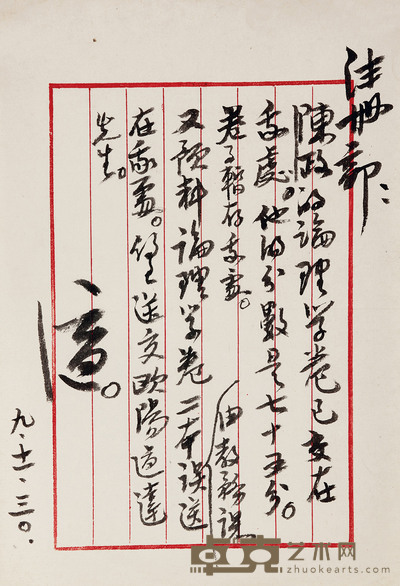 注册部：
陳政的論理学卷已交在
我處。他的分數是七十五分。
卷子暫存我處。
又預科論理学卷二本誤送
由教務課
在我處。望送交歐陽道達
先生。
適。
九、十一、三〇、
卓克艺术网
zhuokearts.com